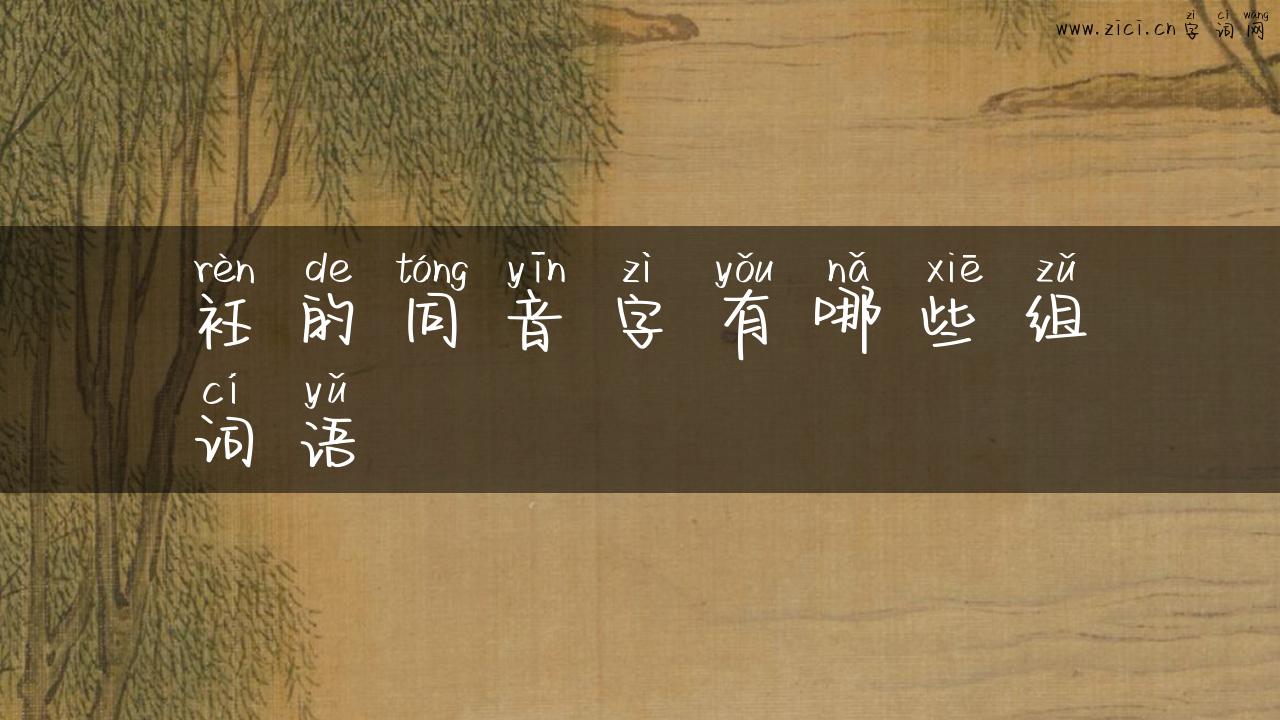 zì cí wǎng
www.zici.cn 字词网
rèn de tóng yīn zì yǒu nǎ xiē zǔ
衽的同音字有哪些组
cí yǔ
词语